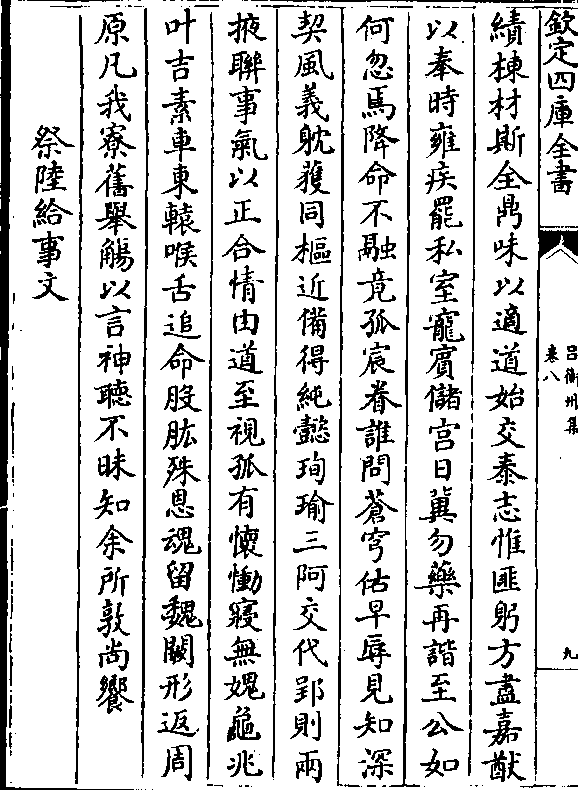 欽定四庫全書
呂衡州集
卷八
九
績棟材斯全鼎味以適道始交泰志惟匪躬方盡嘉猷
以奉時雍疾罷私室寵賓儲宫日冀勿藥再諧至公如
何忽焉降命不融竟孤宸眷誰問蒼穹佶早辱見知深
契風義躭獲同樞近備得純懿珣瑜三阿交代郢則兩
掖聨事氣以正合情由道至視孤有懷慟寢無媿龜兆
叶吉素車東轅喉舌追命股肱殊恩魂留魏闕形返周
原凡我寮舊舉觴以言神聽不昧知余所敦尚饗
祭陸給事文